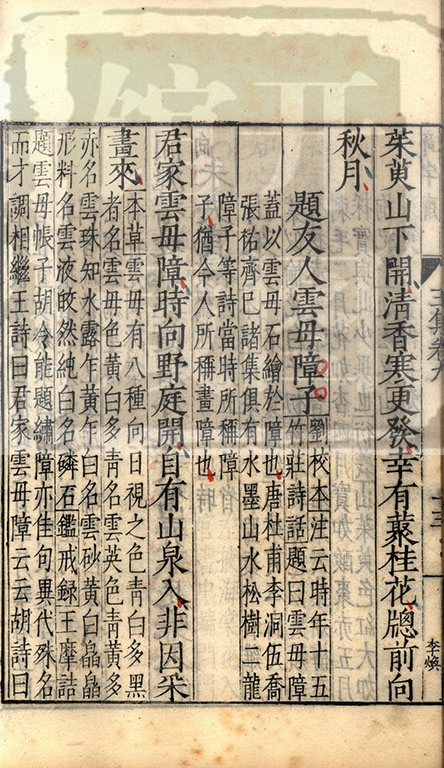 茱萸山下開清香寒更發幸有藂桂花牕前向
秋月
題友人雲母障子劉校本注云時年十五
竹莊詩話題曰雲母障
葢以雲母石繪於障也唐杜甫李洞伍喬
張祐齊巳諸集俱有水墨山水松樹二龍
障子等詩當時所稱障
子猶今人所稱畫障也
君家雲母障時向野庭開自有山泉入非因采
畫來本草雲母有八種向日視之色青白多黑
者名雲母色黃白多青名雲英色青黃多
赤名雲珠如水露乍黃乍白名雲砂黃白皛皛
形料名雲液皎然純白名磷石鑑戒録王摩詰
題雲母帳子胡令能題繡障亦佳句異代殊名
而才調相繼王詩曰君家雲母障云云胡詩曰
李煥